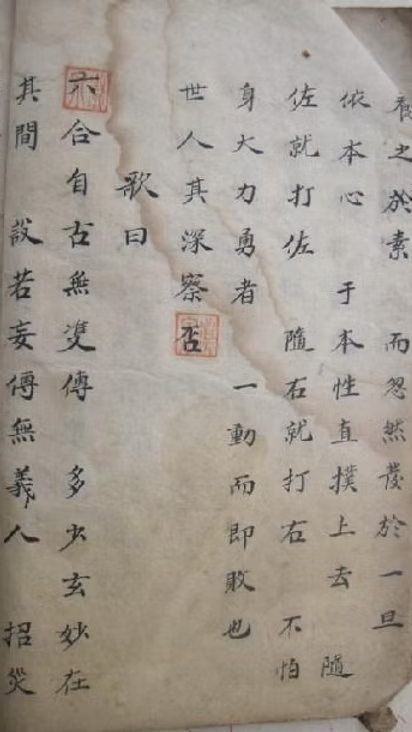 養之於素　而忽然發於一旦
依本心　于本性直撲上去　隨
佐就打佐　隨右就打右　不怕
身大力勇者　一動而即敗也
世人其深察
歌曰
六合自古無雙傳　多少玄妙在
其間　設若妄傳無義人　招災